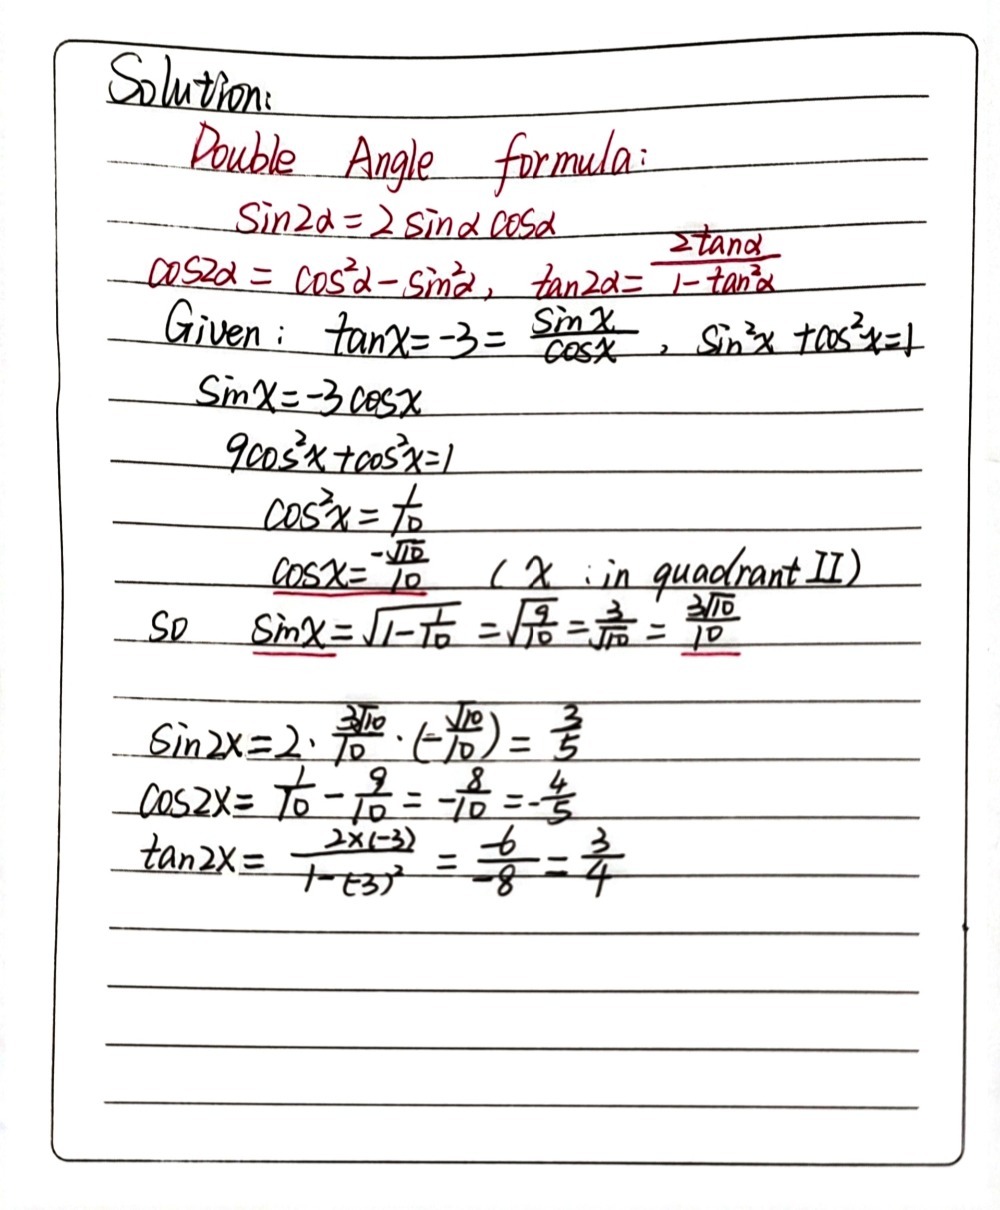 Solution:
Double Angle formula:
Sin2α = 2 sinα cosα
cos2α = cos²α - sin²α, tan2α = 2tanα / (1 - tan²α)
Given: tanx = -3 = sinx / cosx, sin²x + cos²x = 1
Sinx = -3cosx
9cos²x + cos²x = 1
cos²x = 1/10
cosx = -√10/10 (x : in quadrant II)
So sinx = √(1 - 1/10) = √(9/10) = 3/√10 = 3√10/10
Sin2x = 2 · 3√10/10 · (-√10/10) = 3/5
cos2x = 1/10 - 9/10 = -8/10 = -4/5
tan2x = 2×(-3) / (1-(-3)²) = -6/-8 = 3/4